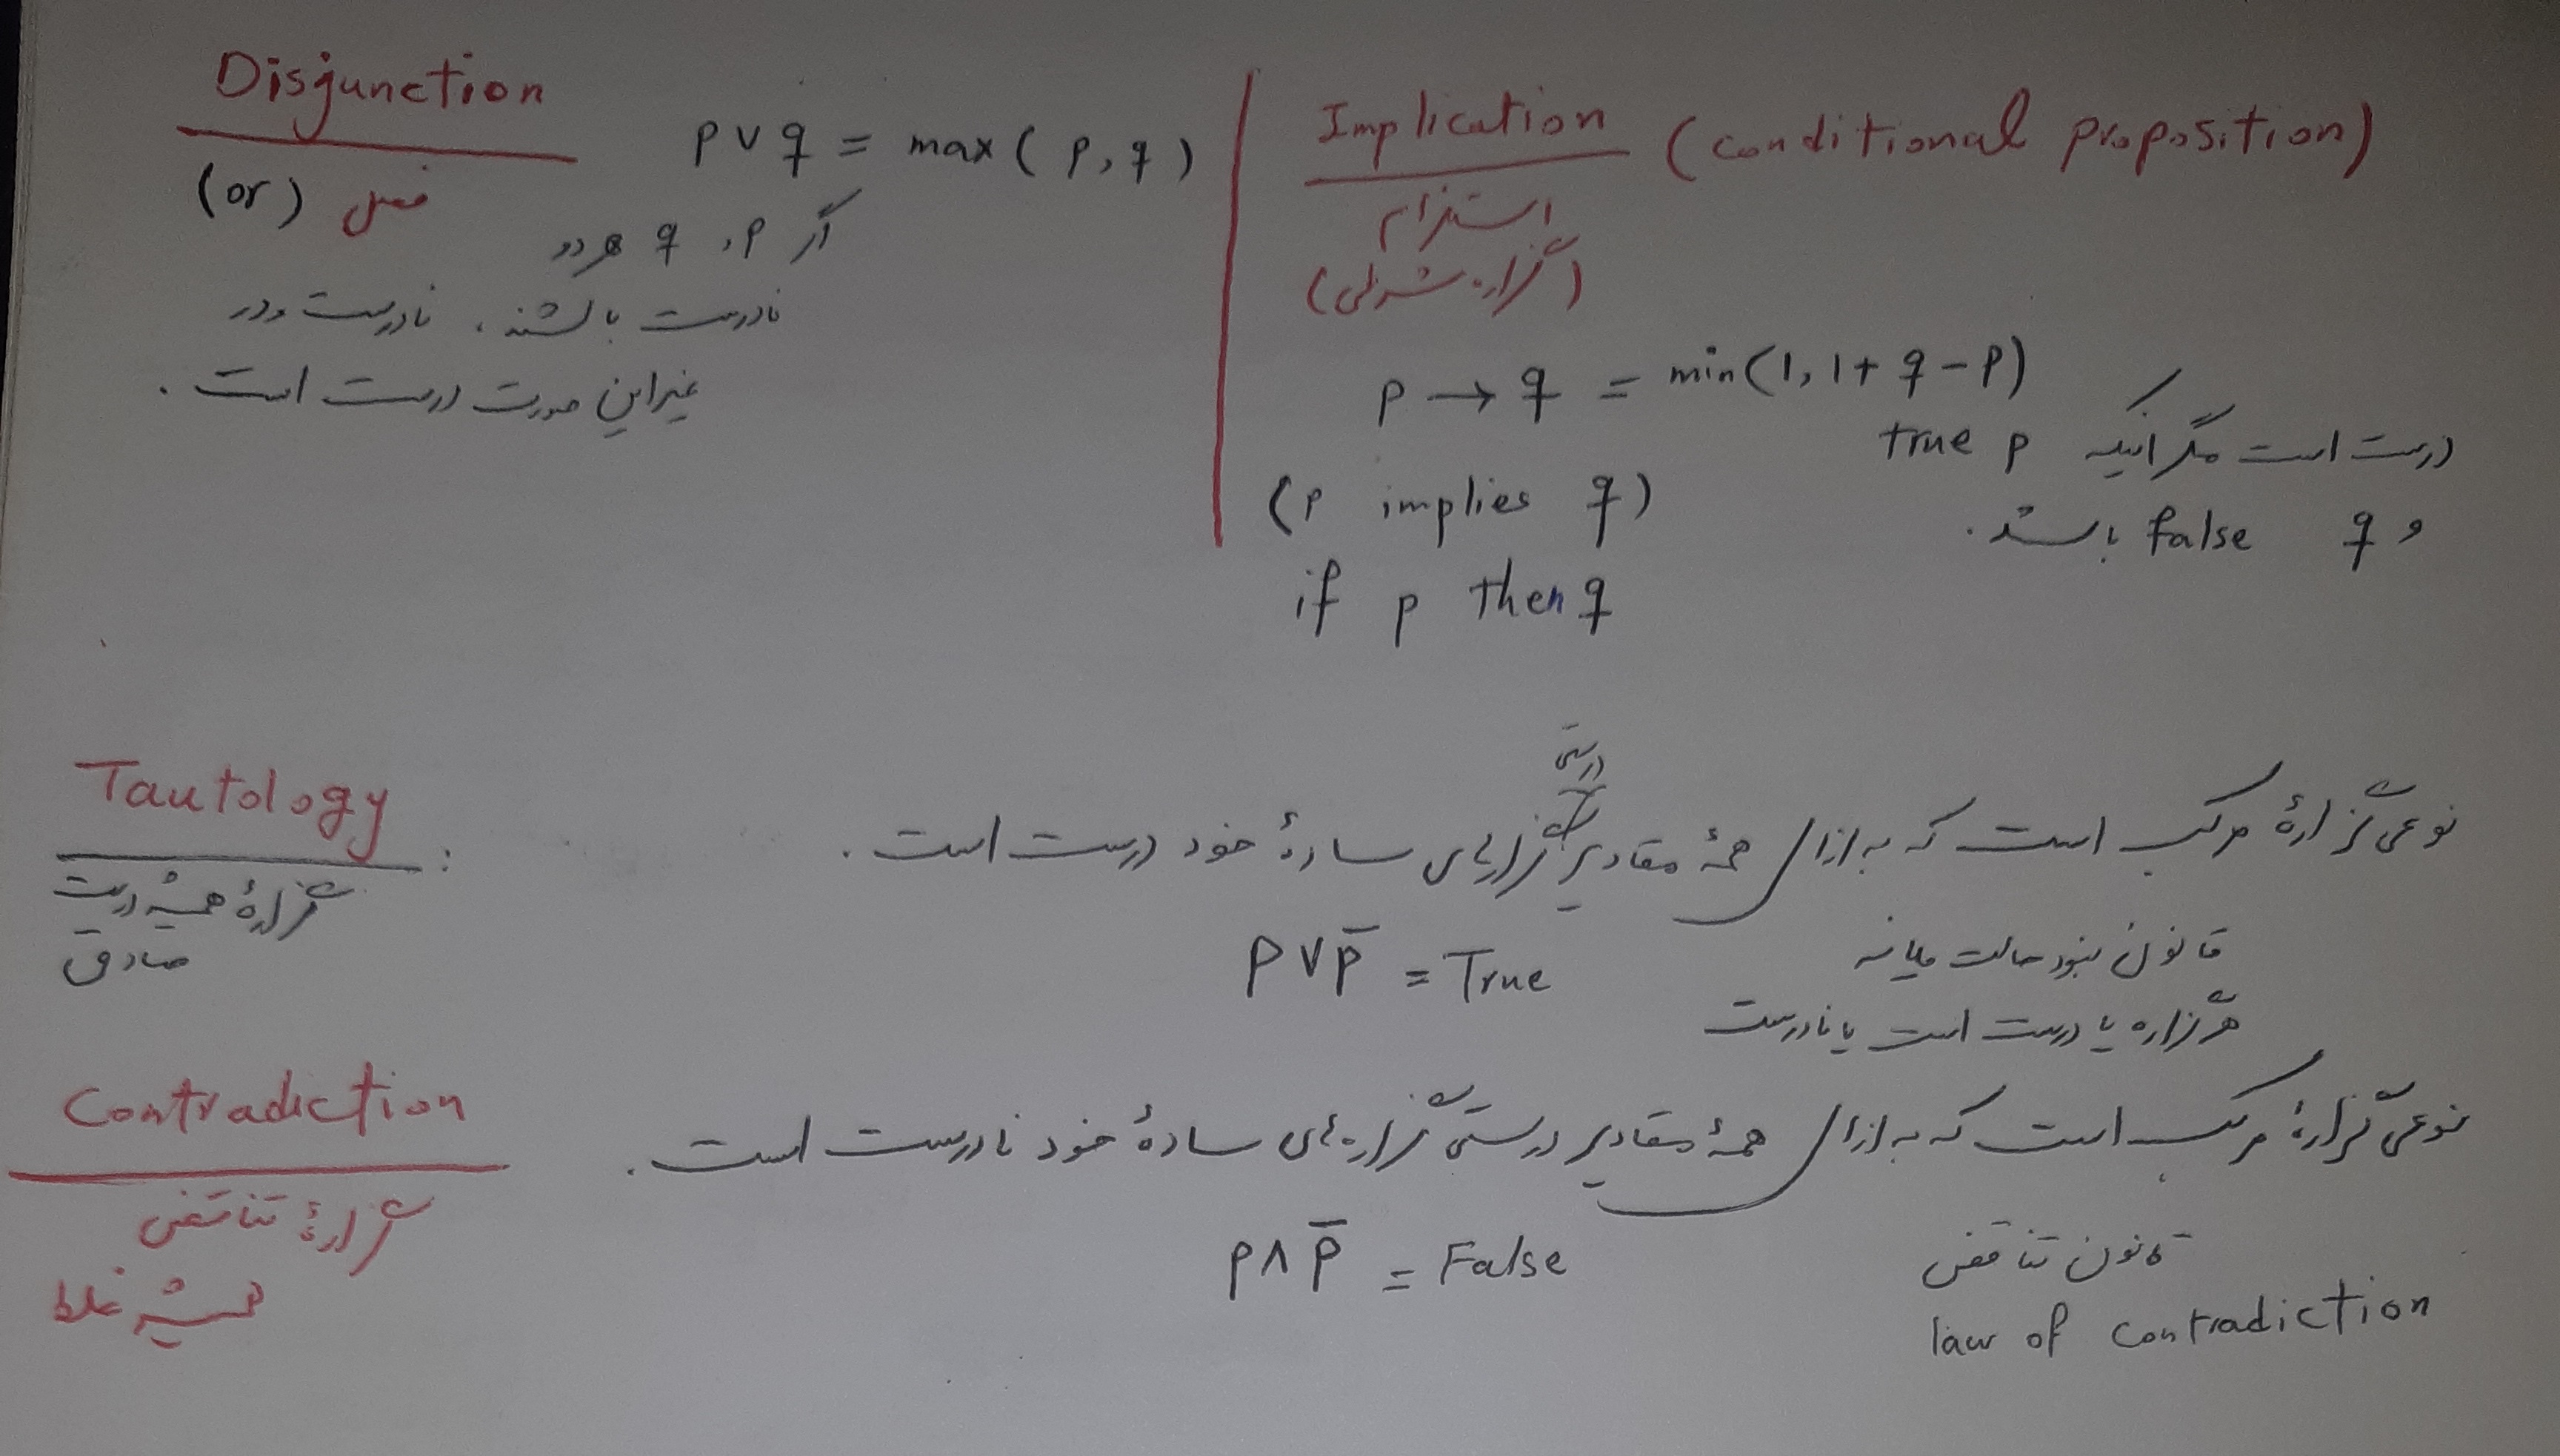 Disjunction
(or) فصل
p ∨ q = max ( p, q )
اگر p، q هر دو
نادرست باشند، نادرست ودر
غیر این صورت درست است .
Implication (conditional proposition)
استلزام
(گزاره شرطی)
p → q = min(1, 1 + q - p)
درست است مگر اینکه p true
و q false باشد.
(p implies q)
if p then q
Tautology :
گزارهٔ همیشه درست
صادق
درستی
نوعی گزارهٔ مرکب است که به ازای همهٔ مقادیر گزارهای سادهٔ خود درست است .
p ∨ p̅ = True
قانون نبود حالت میانه
هر گزاره یا درست است یا نادرست
Contradiction
گزارهٔ تناقض
همیشه غلط
نوعی گزارهٔ مرکب است که به ازای همهٔ مقادیر درستی گزاره‌های سادهٔ خود نادرست است .
p ∧ p̅ = False
قانون تناقض
law of contradiction